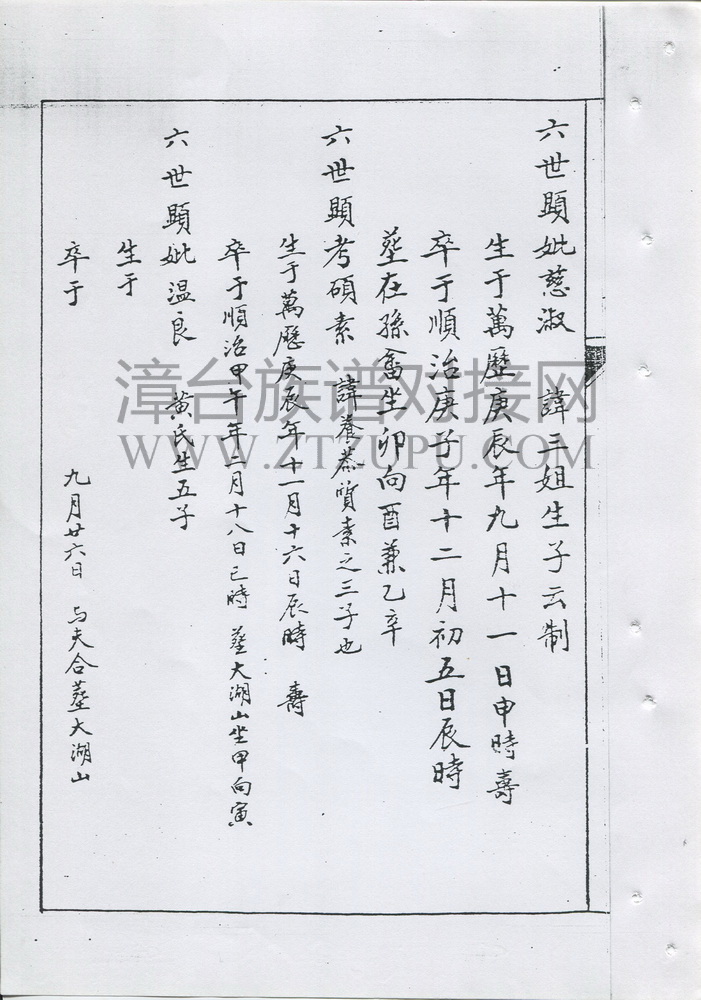 六世顯妣慈淑 諱三姐生子云制
生于萬歷庚辰年九月十一日申時壽
卒于順治庚子年十二月初五日辰時
塟在孫畬坐卯向酉兼乙辛
六世顯考碩素 諱養恭質素之三子也
生于萬歷庚辰年十一月十六日辰時 壽
卒于順治甲午年二月十八日巳時 塟大湖山坐甲向寅
六世顯妣温良 黄氏生五子
生于
卒于 九月廿六日 与夫合塟大湖山
漳台族谱对接网
WWW.ZTZUPU.COM